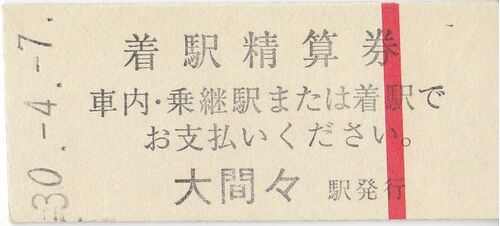 着駅精算券
車内・乗継駅または着駅で
お支払いください。
大間々 駅発行
30.-4.-7.